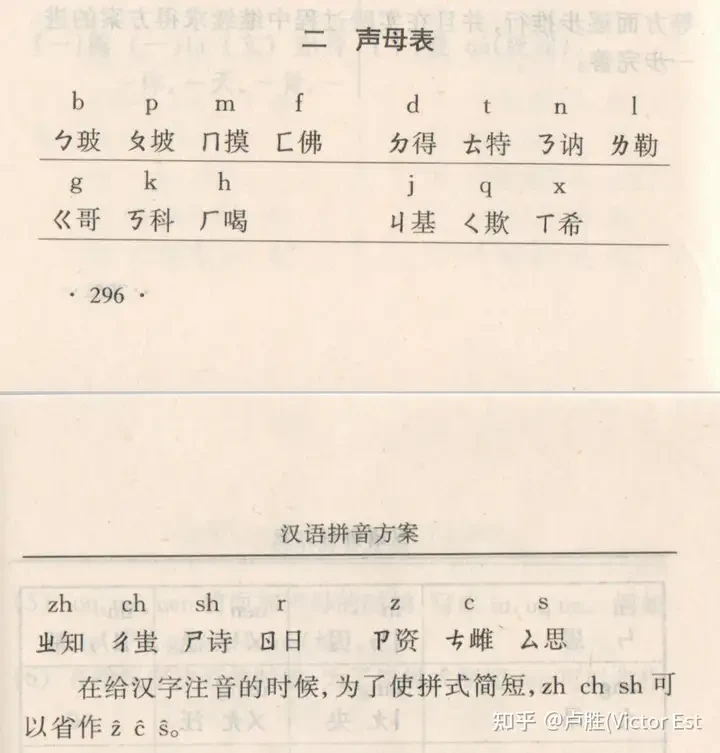 二 声母表
b p m f d t n l
ㄅ玻 ㄆ坡 ㄇ摸 ㄈ佛 ㄉ得 ㄊ特 ㄋ讷 ㄌ勒
g k h j q x
ㄍ哥 ㄎ科 ㄏ喝 ㄐ基 ㄑ欺 ㄒ希
· 296 ·
汉语拼音方案
zh ch sh r z c s
ㄓ知 ㄔ蚩 ㄕ诗 ㄖ日 ㄗ资 ㄘ雌 ㄙ思
在给汉字注音的时候,为了使拼式简短,zh ch sh 可
以省作 ẑ ĉ ŝ。
知乎 @卢胜(Victor Est